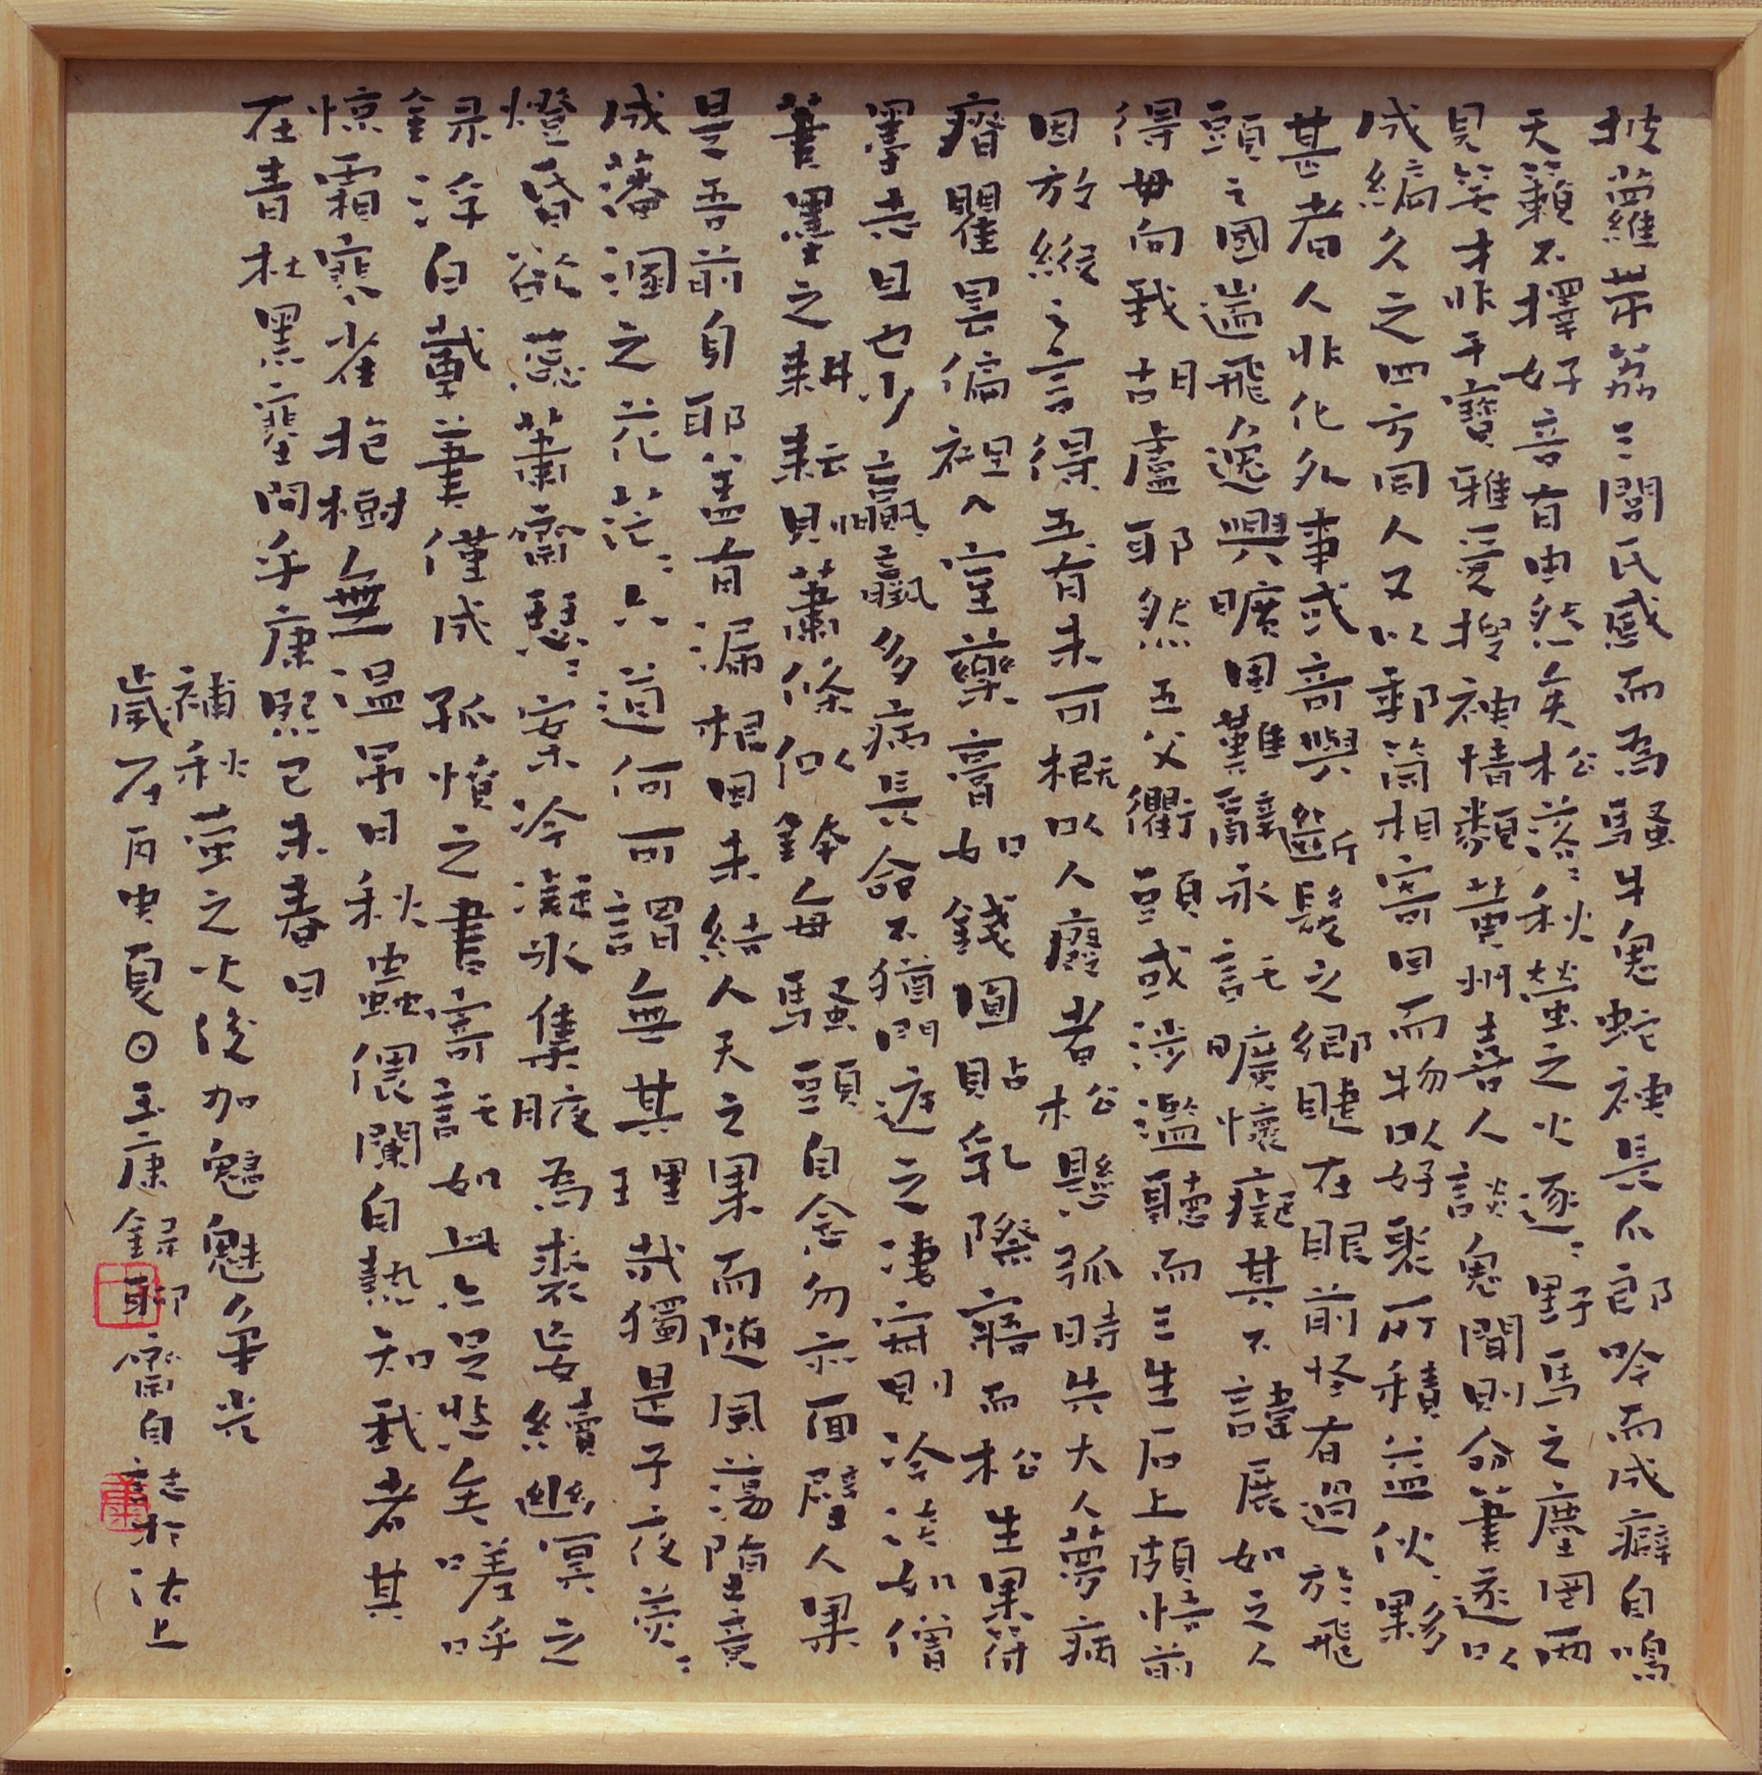 披蘿帶荔三閭氏感而為騷牛鬼蛇神長爪郎吟而成癖自鳴
天籟不擇好音有由然矣松落〻秋螢之火逐〻野馬之塵罔兩
見笑才非干寶雅愛搜神情類黃州喜人談鬼聞則命筆遂以
成編久之四方同人又以郵筒相寄因而物以好聚所積益伙夥
甚者人非化外事或奇與斷髮之鄉睫在眼前怪有過於飛
頭之國遄飛逸興曠固難辭永託曠懷癡其不諱展如之人
得毋向我胡盧耶然五父衢頭或涉濫聽而三生石上頗悟前
因放縱之言得五有未可概以人廢者松懸弧時先大人夢病
瘠瞿曇偏袒入室藥膏如錢圓貼乳際寤而松生果符
墨志且也少羸羸多病長命不猶門庭之凄寂則冷淡如僧
筆墨之耕耘則蕭條似缽每騷頭自念勿亦面壁人果
是吾前身耶蓋有漏根因未結人天之果而隨風蕩墮竟
成藩溷之花茫〻六道何可謂無其理哉獨是子夜熒〻
燈昏欲蕊蕭齋瑟〻案冷凝冰集腋為裘妄續幽冥之
錄浮白載筆僅成孤憤之書寄託如此亦足悲矣嗟呼
惊霜寒雀抱樹無温吊月秋蟲偎闌自熱知我者其
在青林黑塞間乎康熙己未春日
補秋螢之火後加魑魅爭光
歲在丙申夏日玉康錄聊齋自誌於沽上